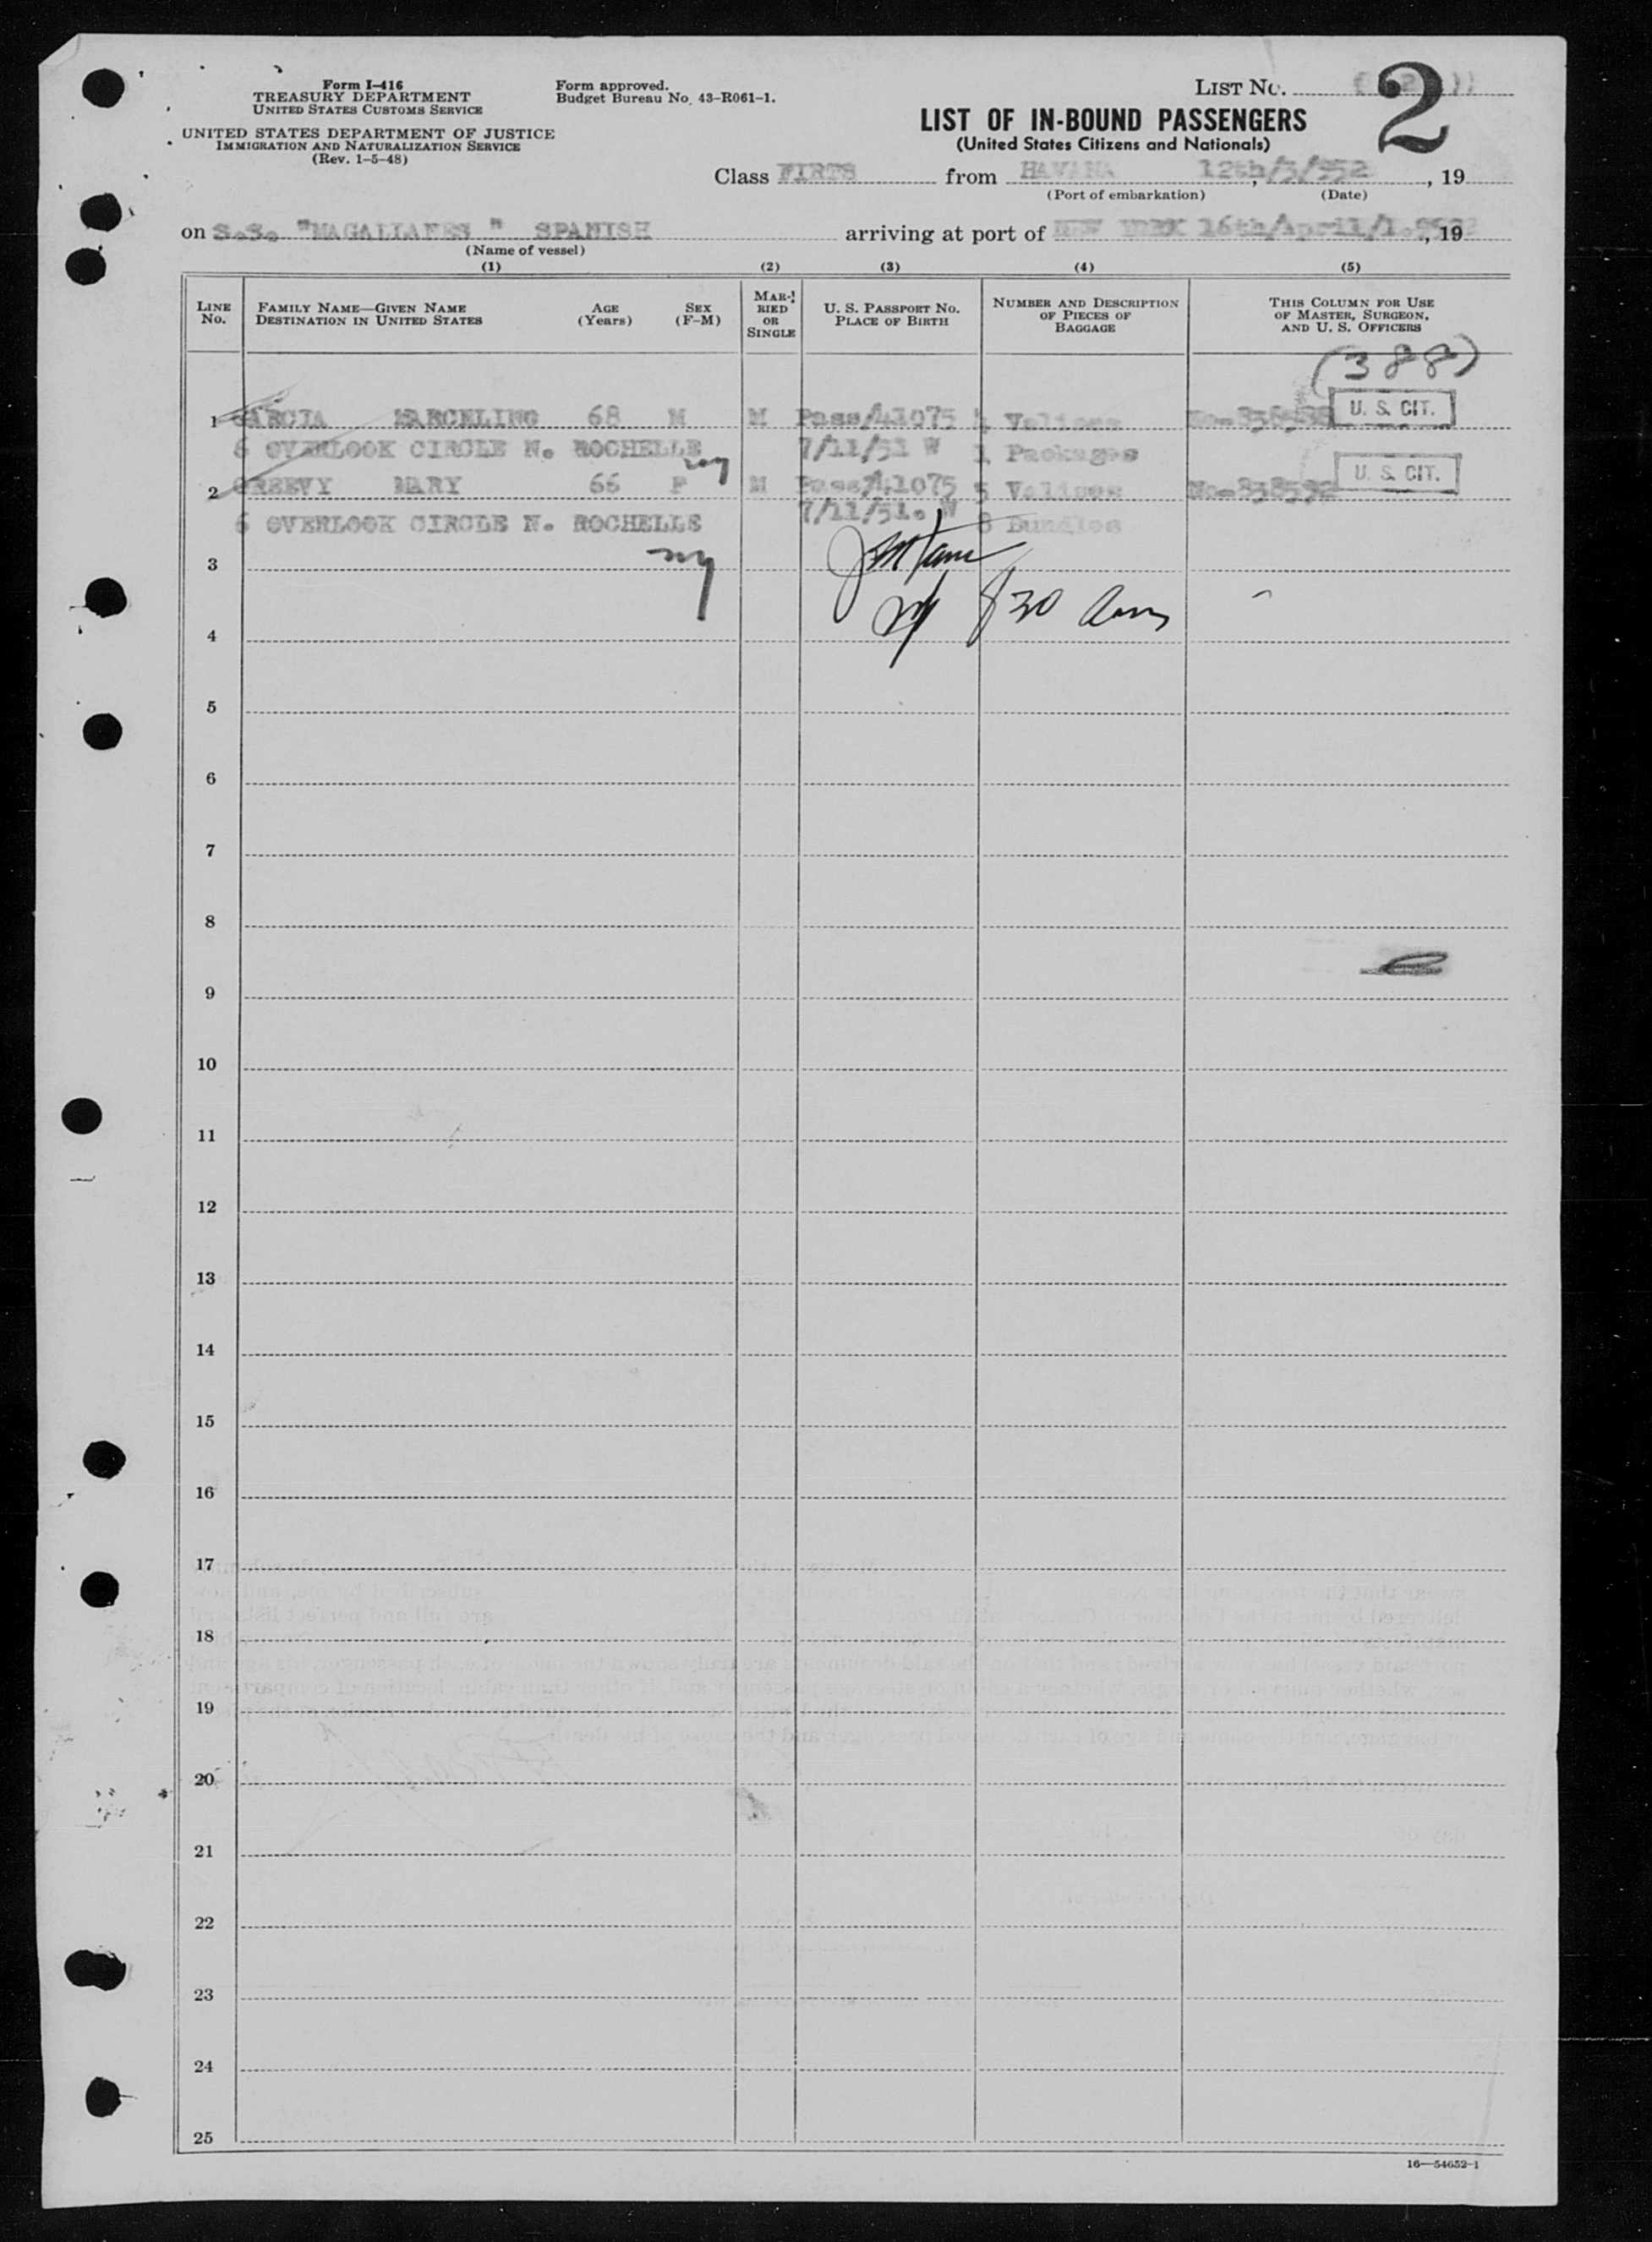 Form I-416
TREASURY DEPARTMENT
UNITED STATES CUSTOMS SERVICE
UNITED STATES DEPARTMENT OF JUSTICE
IMMIGRATION AND NATURALIZATION SERVICE
(Rev. 1-5-48)
Form approved.
Budget Bureau No. 43-R061-1.
LIST NO. 2
LIST OF IN-BOUND PASSENGERS
(United States Citizens and Nationals)
Class FIRTS from HAVANA 12th/ , 19
(Port of embarkation) (Date)
on S.S. "MAGALLANES " SPANISH arriving at port of NEW YORK 16th/April/ , 19
(Name of vessel)
(1) (2) (3) (4) (5)
LINE No. FAMILY NAME—GIVEN NAME DESTINATION IN UNITED STATES AGE (Years) SEX (F-M) MARRIED OR SINGLE U. S. PASSPORT NO. PLACE OF BIRTH NUMBER AND DESCRIPTION OF PIECES OF BAGGAGE THIS COLUMN FOR USE OF MASTER, SURGEON, AND U. S. OFFICERS
(388)
1 GARCIA MARCELINO 68 M M Pass/41075 Valises U. S. CIT.
6 OVERLOOK CIRCLE N. ROCHELLE ny 7/11/51 W 1 Packages
2 GREEVY MARY 66 F M Pass/41075 5 Valises U. S. CIT.
6 OVERLOOK CIRCLE N. ROCHELLS 7/11/51. W 8 Bundles
ny
3
830 am
4
5
6
7
8
9
10
11
12
13
14
15
16
17
18
19
20
21
22
23
24
25
16—54652-1